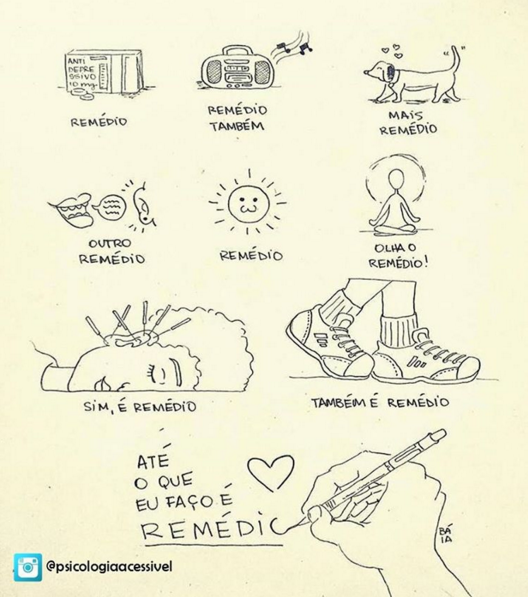 ANTI
DEPRE
SSIVO
10 mg
REMÉDIO
REMÉDIO
TAMBÉM
MAIS
REMÉDIO
OUTRO
REMÉDIO
REMÉDIO
OLHA O
REMÉDIO!
SIM, É REMÉDIO
TAMBÉM É REMÉDIO
ATÉ
O QUE
EU FAÇO É
REMÉDIO
BÁ
IA
@psicologiaacessivel